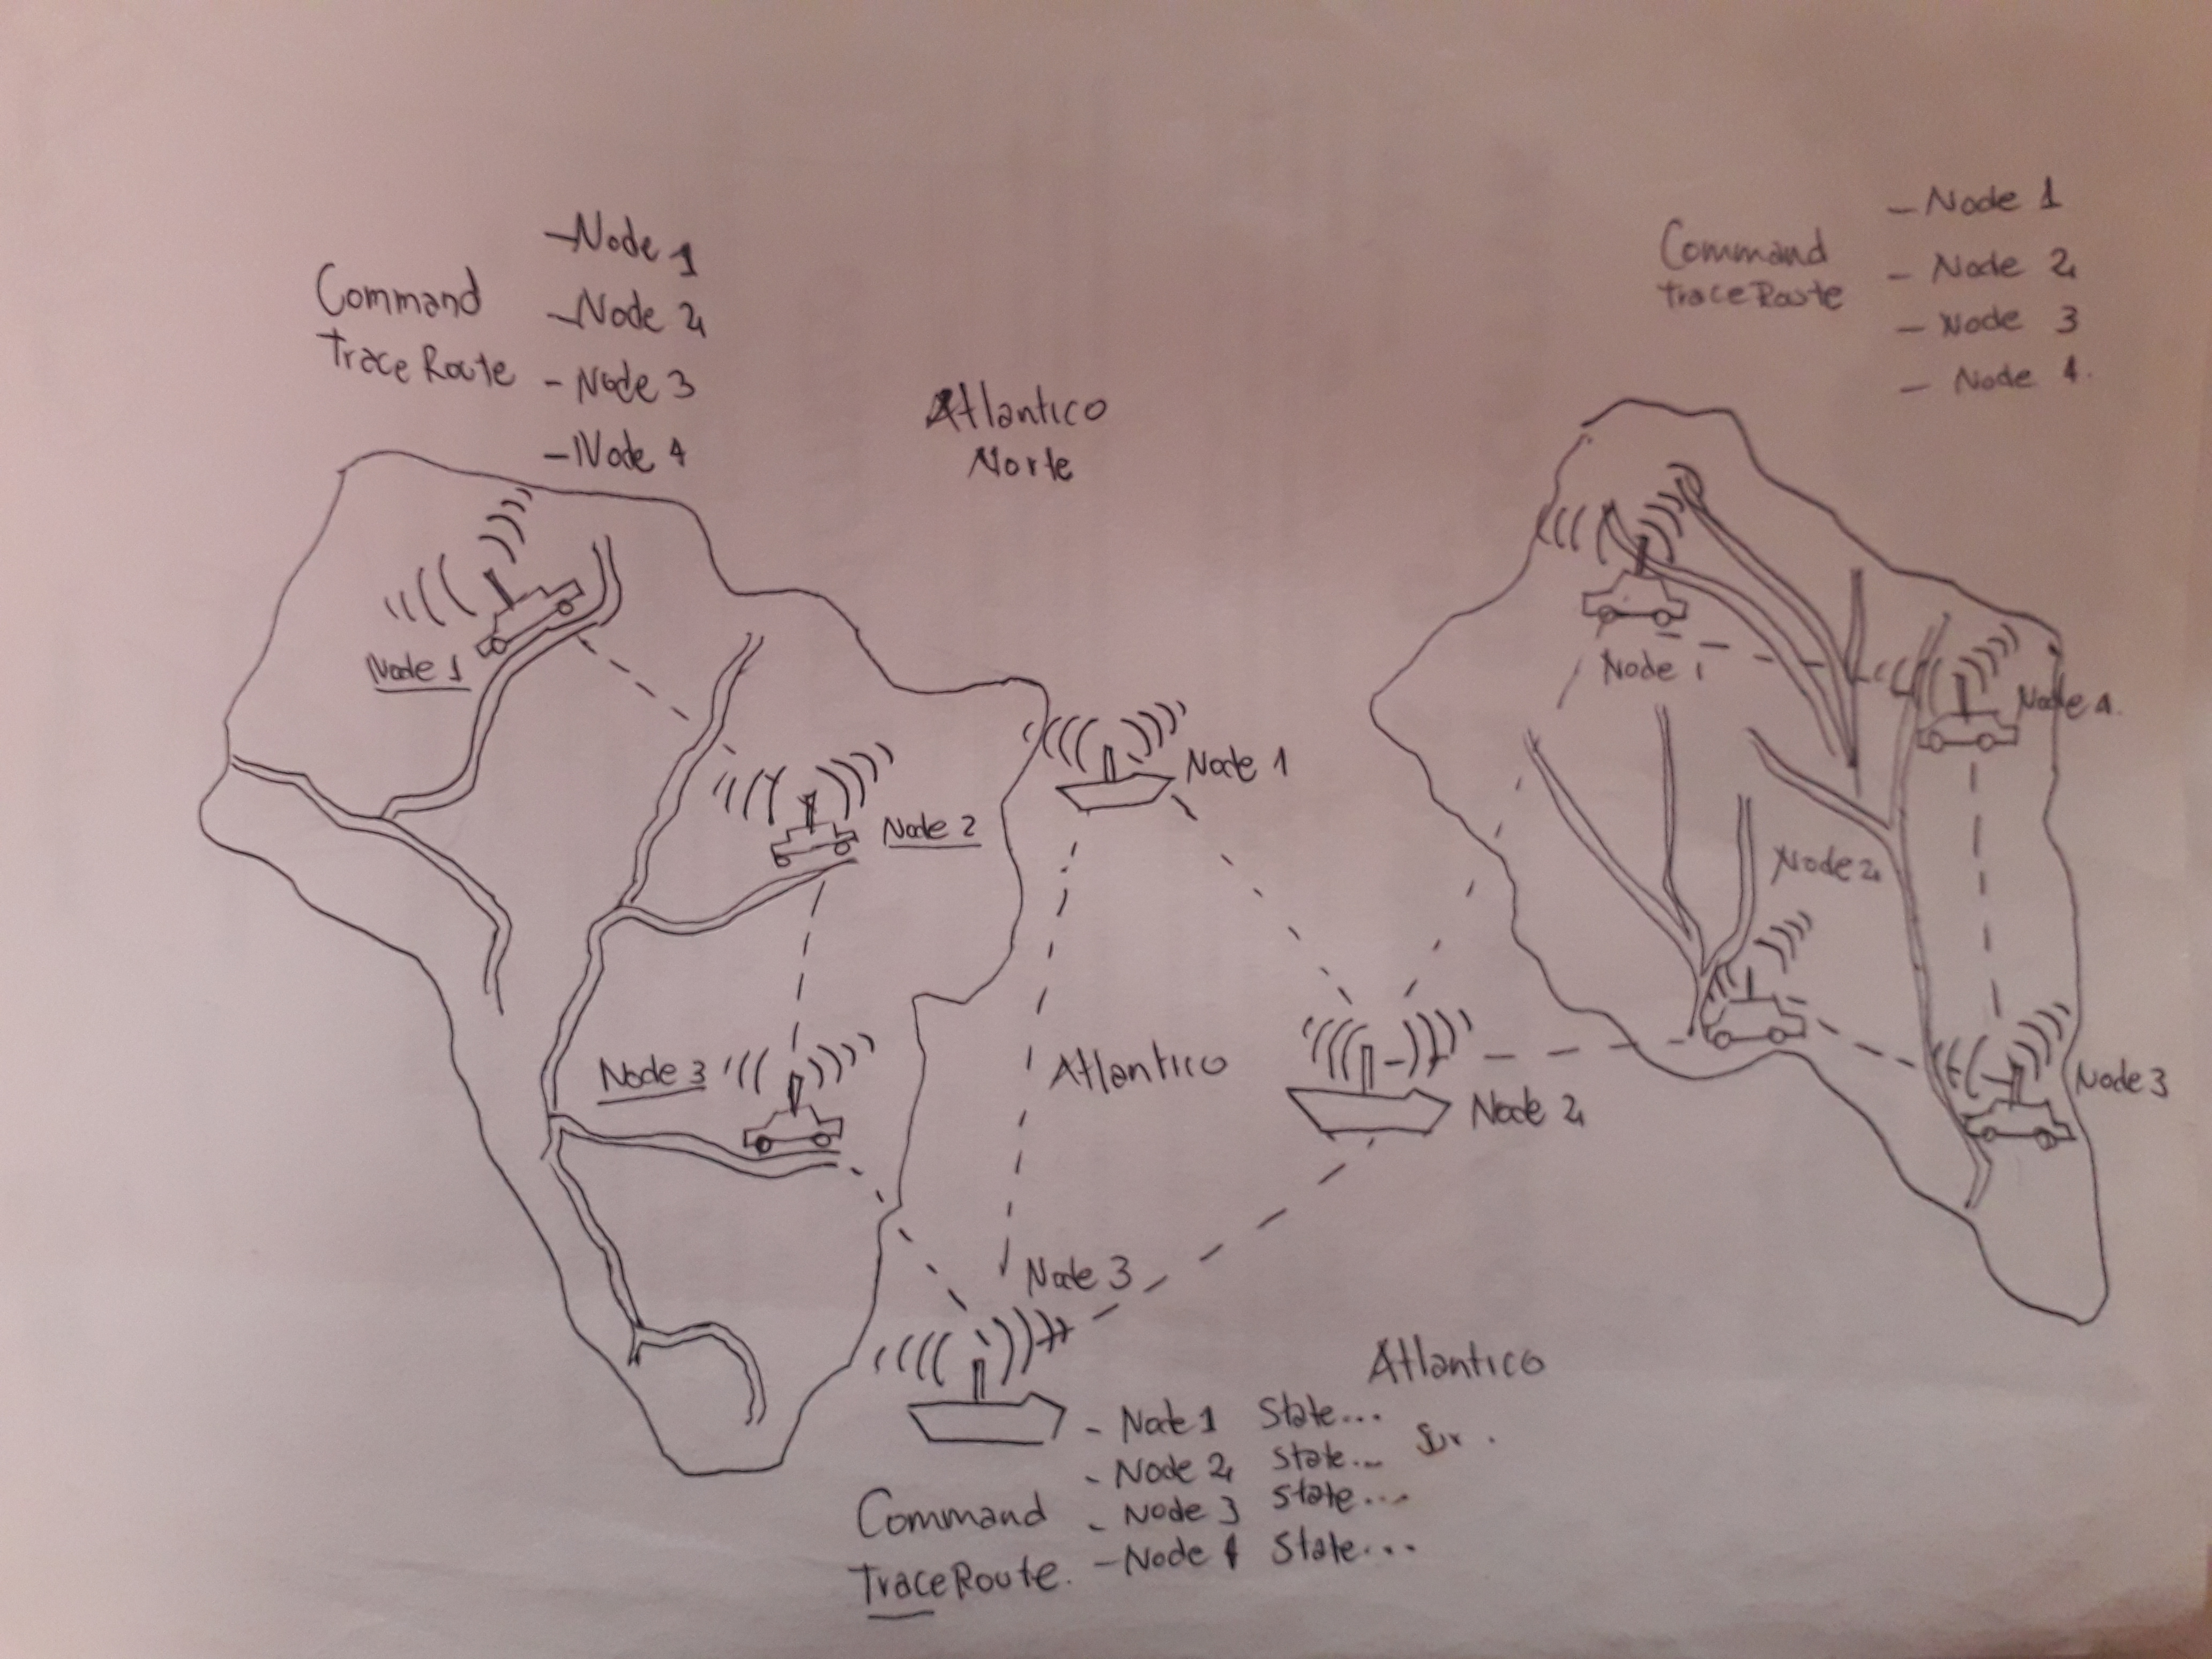 Command
Trace Route
- Node 1
- Node 2
- Node 3
- Node 4
Atlantico
Norte
Command
trace Route
- Node 1
- Node 2
- Node 3
- Node 4.
Node 1
Node 2
Node 3
Node 1
Atlantico
Node 2
Node 3
Node 1
Node 4.
Node 2
Node 3
Atlantico
Sur.
Command
TraceRoute.
- Node 1 State...
- Node 2 State...
- Node 3 State...
- Node 4 State...